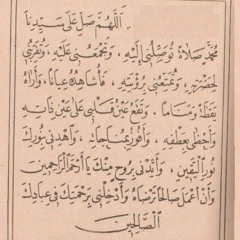 اَللّٰهُمَّ صَلِّ عَلَى سَيِّدِنَا
مُحَمَّدٍ صَلَاةً تُوصِلُنِي إِلَيْهِ، وَتَجْمَعُنِي عَلَيْهِ، وَتُقَرِّبُنِي
لِحَضْرَتِهِ، وَتُمَتِّعُنِي بِرُؤْيَتِهِ، فَأُشَاهِدُهُ عِيَانًا، وَأَرَاهُ
يَقَظَةً وَمَنَامًا، وَتَقَعُ عَيْنُ قَلْبِي عَلَى عَيْنِ ذَاتِهِ
وَأَحْظَى بِعَطْفِهِ، وَأَفُوزُ بِمُنَاجَاتِهِ، وَاهْدِنِي بِنُورِكَ
نُورِ الْيَقِينِ، وَأَيِّدْنِي بِرُوحٍ مِنْكَ يَا أَرْحَمَ الرَّاحِمِينَ
وَأَنْ أَعْمَلَ صَالِحًا تَرْضَاهُ وَأَدْخِلْنِي بِرَحْمَتِكَ فِي عِبَادِكَ
الصَّالِحِينَ